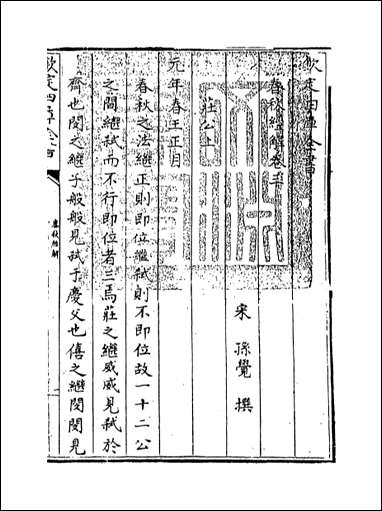 欽定四庫全書
春秋經解卷三
宋 孫覺 撰
莊公上
元年春王正月
春秋之法繼正則即位繼弑則不即位故一十二公
之間繼弑而不行即位者三焉莊之繼威威見弑於
齊也閔之繼子般般見弑于慶父也僖之繼閔閔見
欽定四庫全書
春秋經解